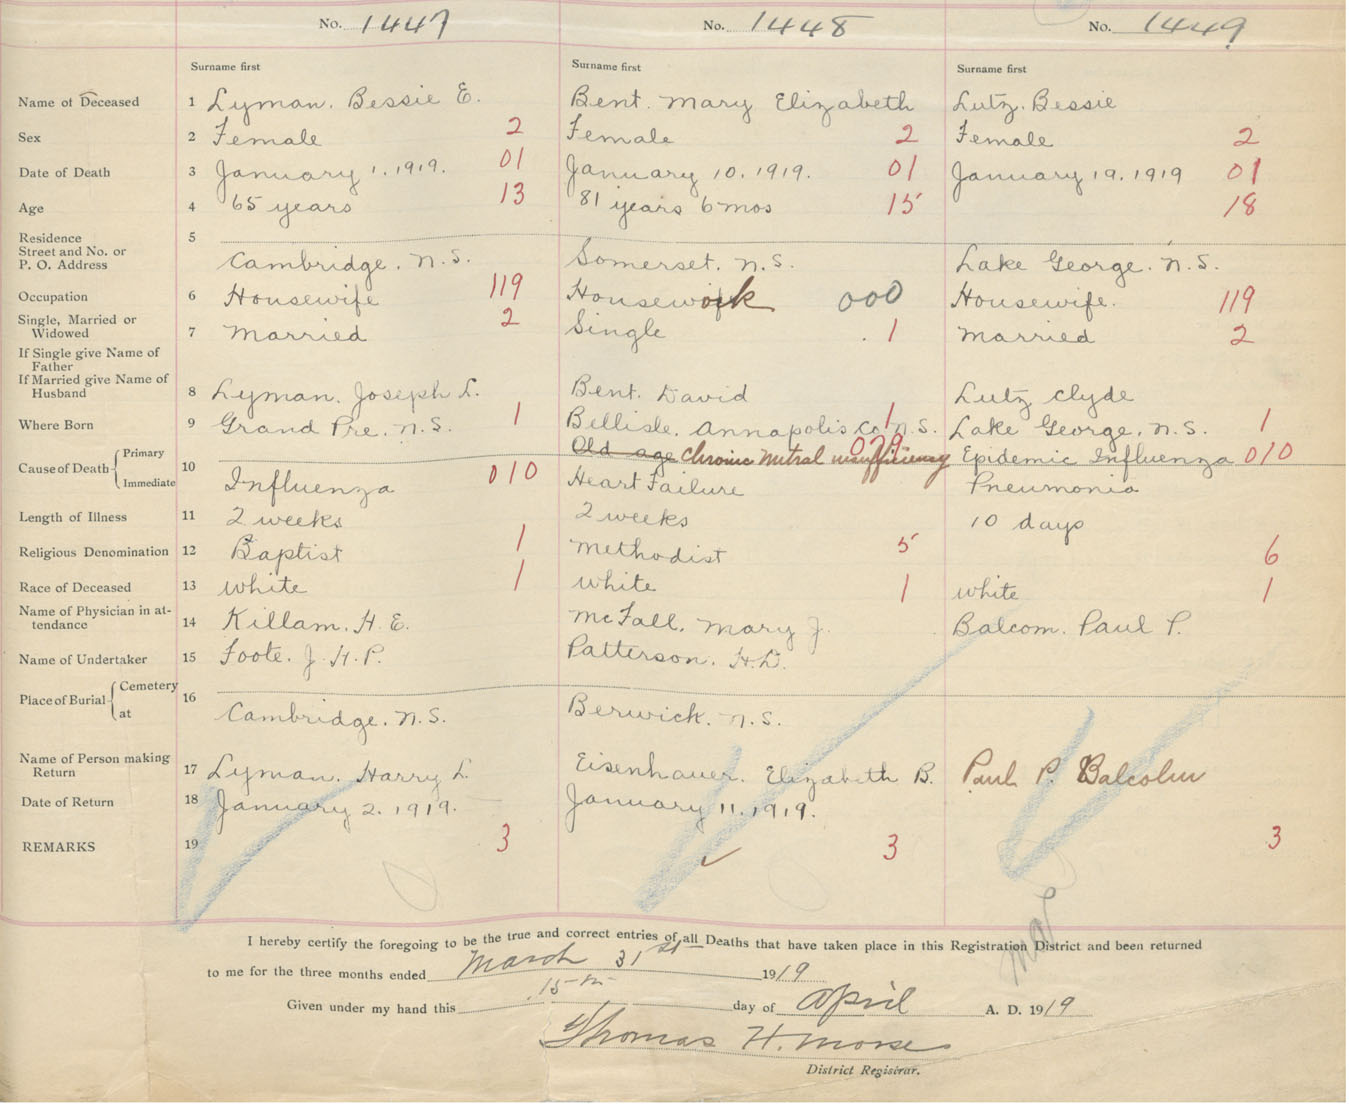 No. 1447 No. 1448 No. 1449
Surname first Surname first Surname first
Name of Deceased 1 Lyman. Bessie E. Bent. Mary Elizabeth Lutz. Bessie
Sex 2 Female 2 Female 2 Female 2
Date of Death 3 January 1. 1919. 01 January 10. 1919. 01 January 19. 1919 01
Age 4 65 years 13 81 years 6 mos 15 18
Residence 5
Street and No. or
P. O. Address Cambridge. N.S. Somerset. N.S. Lake George. N.S.
Occupation 6 Housewife 119 Housework 000 Housewife. 119
Single, Married or
Widowed 7 Married 2 Single 1 Married 2
If Single give Name of
Father
If Married give Name of
Husband 8 Lyman. Joseph L. Bent. David Lutz Clyde
Where Born 9 Grand Pre. N.S. 1 Bellisle. Annapolis Co. N.S. 1 Lake George. N.S. 1
Old age Chronic Mitral insufficiency 079 Epidemic Influenza 010
Cause of Death { Primary
Immediate 10 Influenza 010 Heart Failure Pneumonia
Length of Illness 11 2 weeks 2 weeks 10 days
Religious Denomination 12 Baptist 1 Methodist 5 6
Race of Deceased 13 White 1 White 1 White 1
Name of Physician in at-
tendance 14 Killam. H. E. McFall. Mary J. Balcom. Paul P.
Name of Undertaker 15 Foote. J. H. P. Patterson. H.D.
Place of Burial { Cemetery 16
at Cambridge. N.S. Berwick. N.S.
Name of Person making
Return 17 Lyman. Harry L. Eisenhauer. Elizabeth B. Paul P. Balcolm
Date of Return 18 January 2. 1919. January 11. 1919.
REMARKS 19 3 3 3
Mar
I hereby certify the foregoing to be the true and correct entries of all Deaths that have taken place in this Registration District and been returned
to me for the three months ended March 31st 1919
Given under my hand this 15th day of April A. D. 1919
Thomas H. Morse
District Registrar.